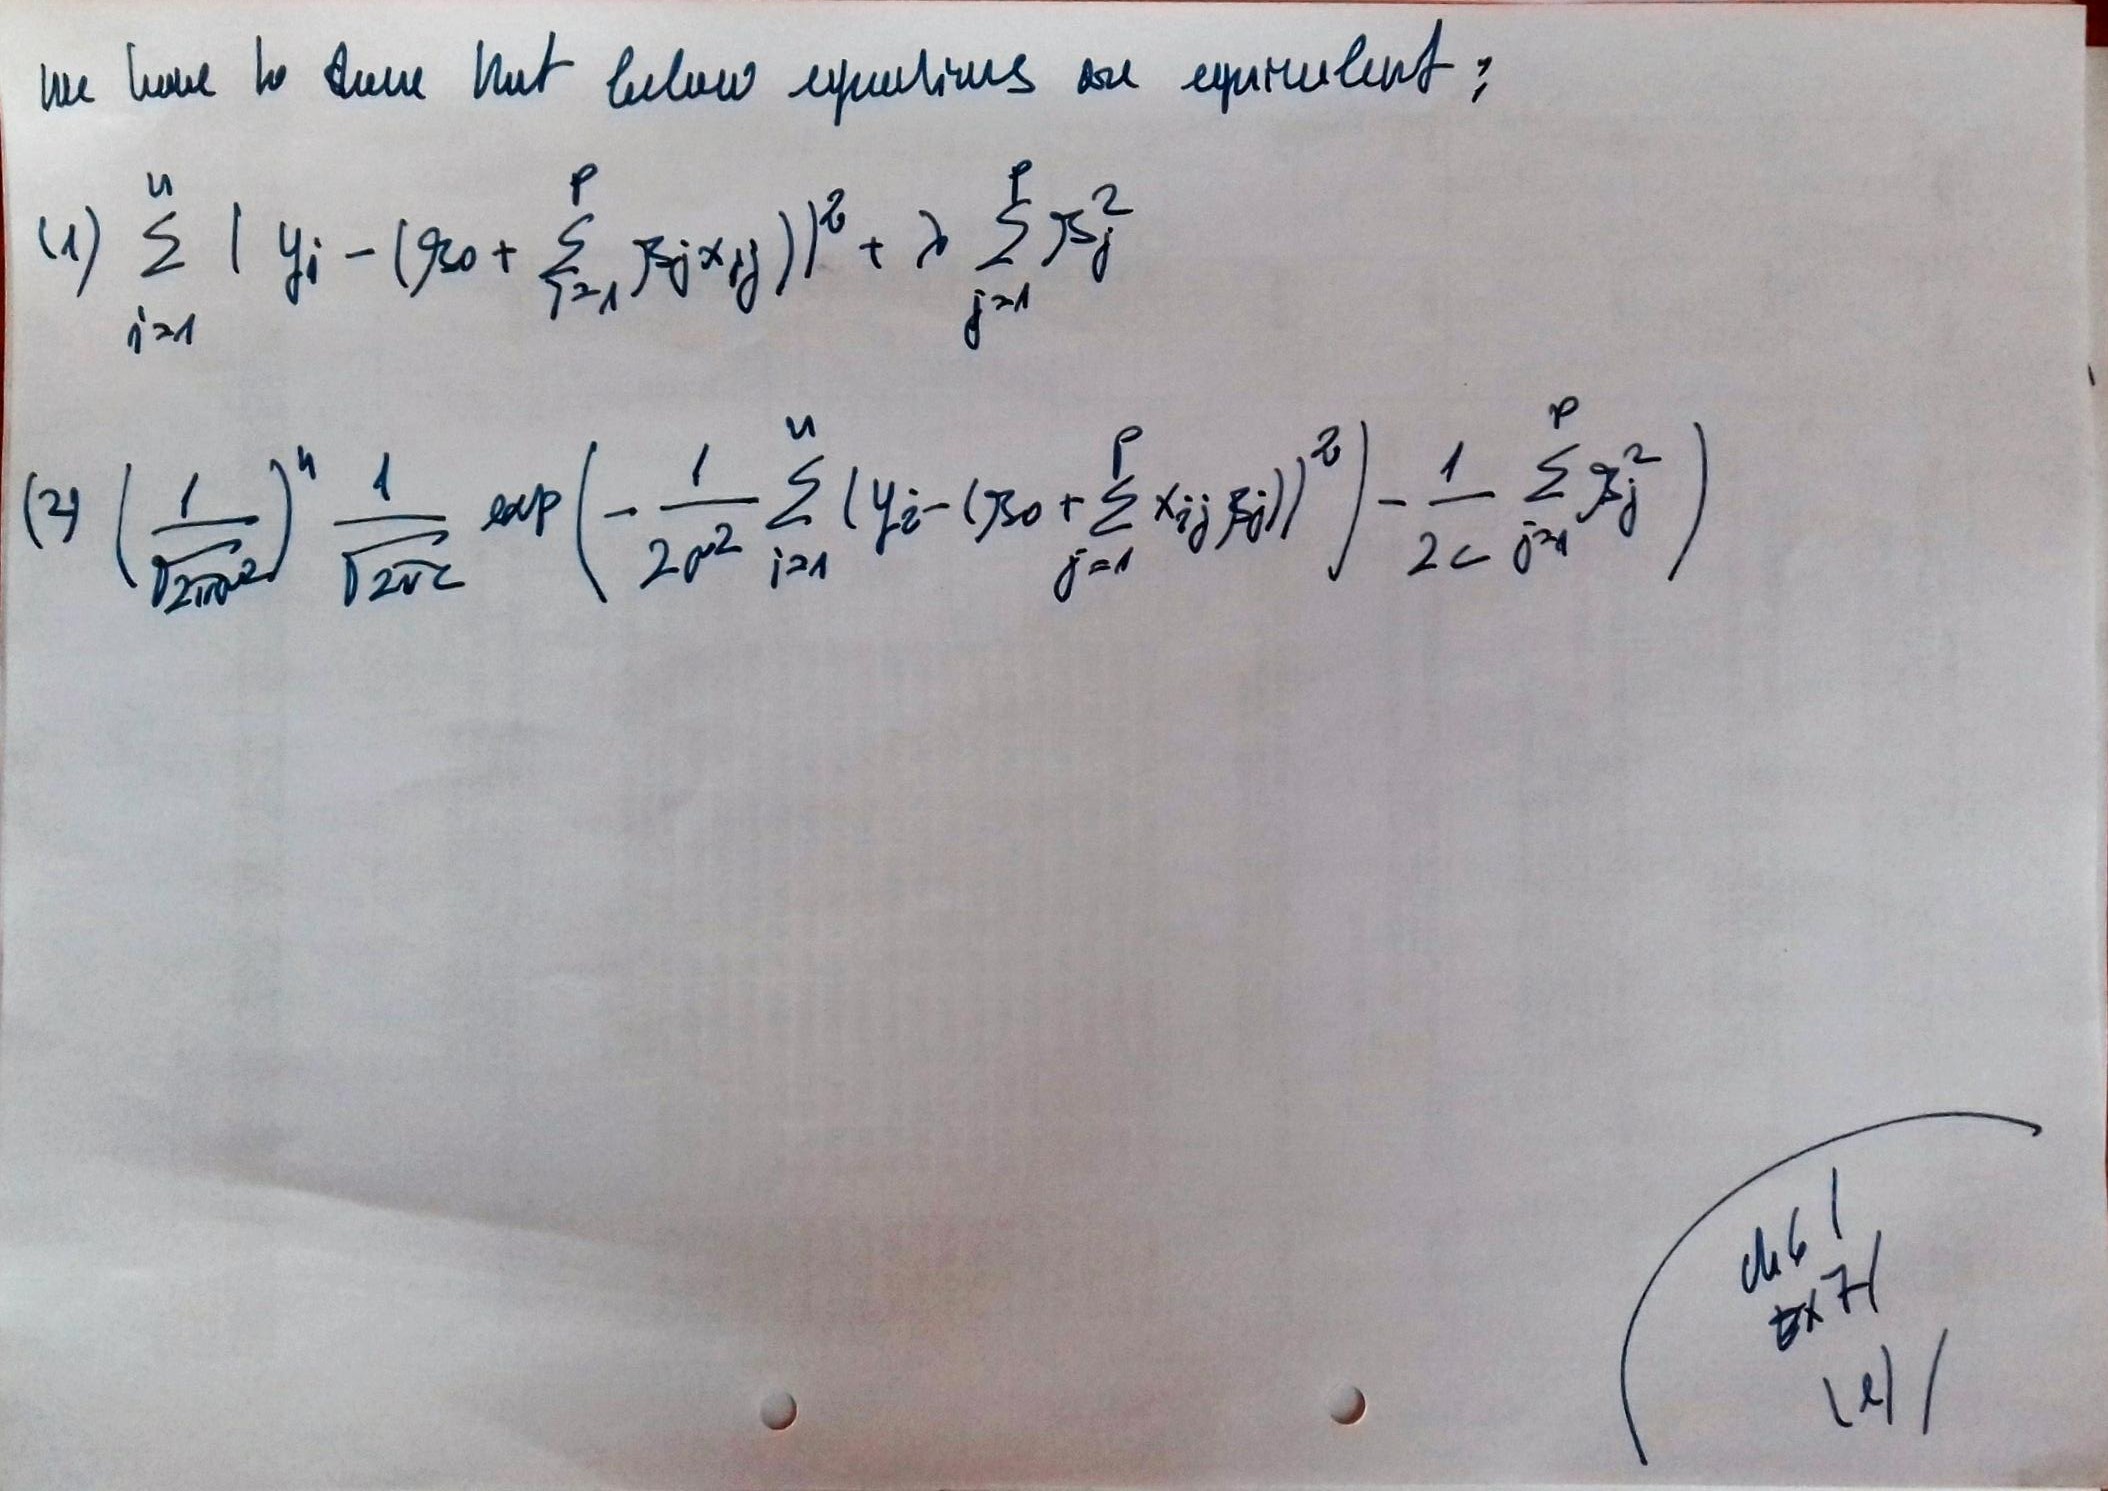 we have to show that below equations are equivalent:
(1) \sum_{i=1}^{n} ( y_i - (β_0 + \sum_{j=1}^{p} β_j x_{ij}))^2 + λ \sum_{j=1}^{p} β_j^2
(2) (\frac{1}{\sqrt{2πσ^2}})^n \frac{1}{\sqrt{2πc}} exp(-\frac{1}{2σ^2} \sum_{i=1}^{n} (y_i - (β_0 + \sum_{j=1}^{p} x_{ij} β_j))^2) - \frac{1}{2c} \sum_{j=1}^{p} β_j^2)
ch6/
Ex 7/
(e)/